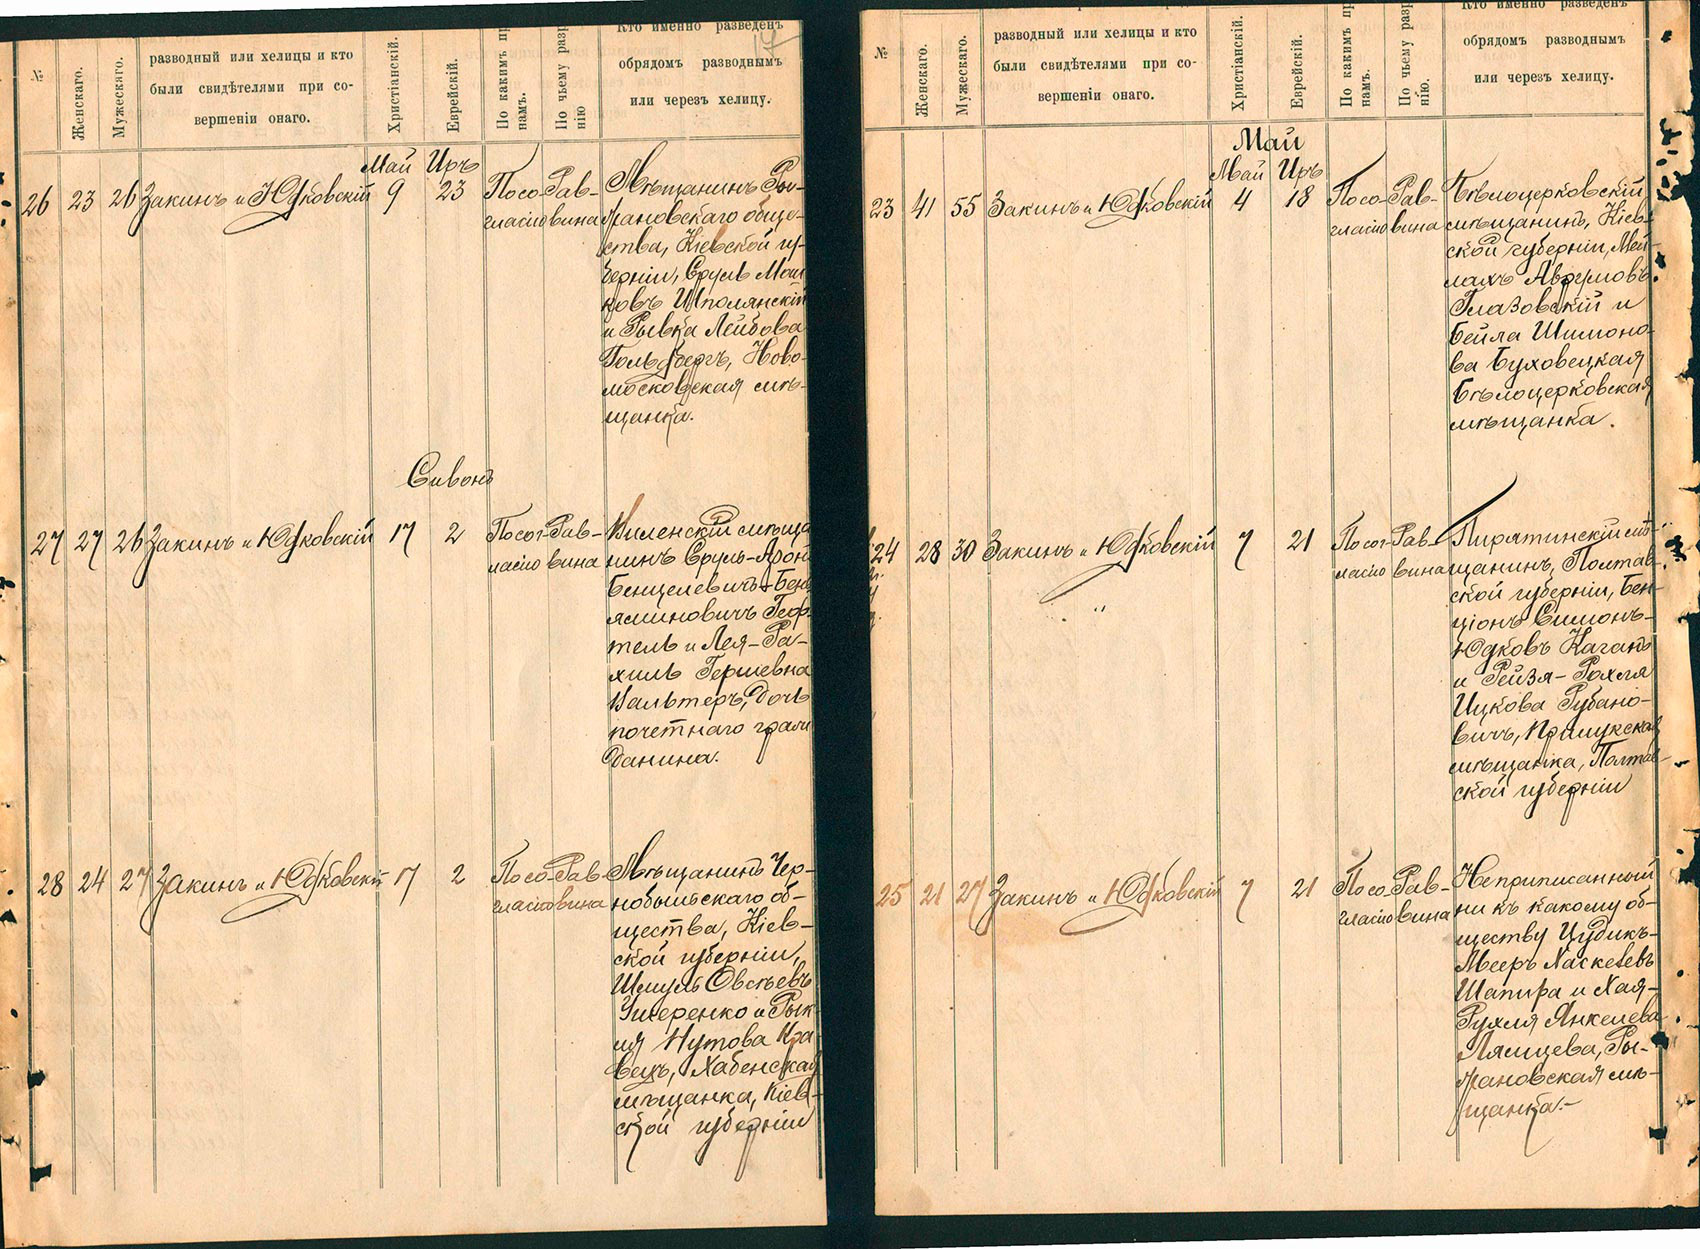 №
Женскаго.
Мужескяго.
разводный или хелицы и кто
были свидѣтелями при со-
вершеніи онаго.
Христіанскій.
Еврейскій.
По какимъ пр
намъ.
По чьему разр
нію
Кто именно разведенъ
обрядомъ разводнымъ
или черезъ хелицу.
17
Май Иръ
26 23 26 Закинъ и Юдковскій 9 23
Посо-
гласію
Рав-
вина
Мѣщанинъ Ры-
жановскаго обще-
ства, Кіевской гу-
берніи, Сруль Мош
ковъ Шполянскій
и Рывка Лейбова
Гольдбергъ, Ново-
московская мѣ-
щанка.
Сивонъ
27 27 26 Закинъ и Юдковскій 17 2
Посог-
ласію
Рав-
вина
Виленскій мѣща
нинъ Сруль-Арон
Бенцелевичъ-Бен
яминовичъ Гер
тель и Лея-Ра-
хиль Гершевна
Вальтеръ, дочь
почетнаго граж
данина.
28 24 27 Закинъ и Юдковскій 17 2
Посо-
гласію
Рав-
вина
Мѣщанинъ Чер-
нобыльскаго об-
щества, Кіев-
ской губерніи,
Шмуль Овсѣевъ
Ушеренко и Рык-
ля Нутова Кра-
вецъ, Хабенская
мѣщанка, Кіев-
ской губерніи
№
Женскаго.
Мужескаго.
разводный или хелицы и кто
были свидѣтелями при со-
вершеніи онаго.
Христіанскій.
Еврейскій.
По какимъ пр
намъ.
По чьему разр
нію.
Кто именно разведенъ
обрядомъ разводнымъ
или черезъ хелицу.
Май
Май Иръ
23 41 55 Закинъ и Юдковскій 4 18
Посо-
гласію
Рав-
вина
Бѣлоцерковскій
мѣщанинъ, Кіев-
ской губерніи, Мей-
лахъ Аврумовъ
Глазовскій и
Бейла Шимоно-
ва Буховецкая
Бѣлоцерковская
мѣщанка.
24 28 30 Закинъ и Юдковскій 7 21
"
Посог-
ласію
Рав-
вина
Пирятинскій мѣ-
щанинъ, Полтав-
ской губерніи, Бен-
ціонъ Симонъ-
Юдковъ Каганъ
и Рейзя-Рохля
Ицкова Рубано-
вичъ, Прилукская
мѣщанка, Полтав-
ской губерніи
25 21 27 Закинъ и Юдковскій 7 21
Посо-
гласію
Рав-
вина
Неприписанный
ни къ какому об-
ществу Цудикъ-
Мееръ Хаскелевъ
Шапира и Хая-
Рухля Янкелева
Лямцева, Ры-
жановская мѣ-
щанка.-